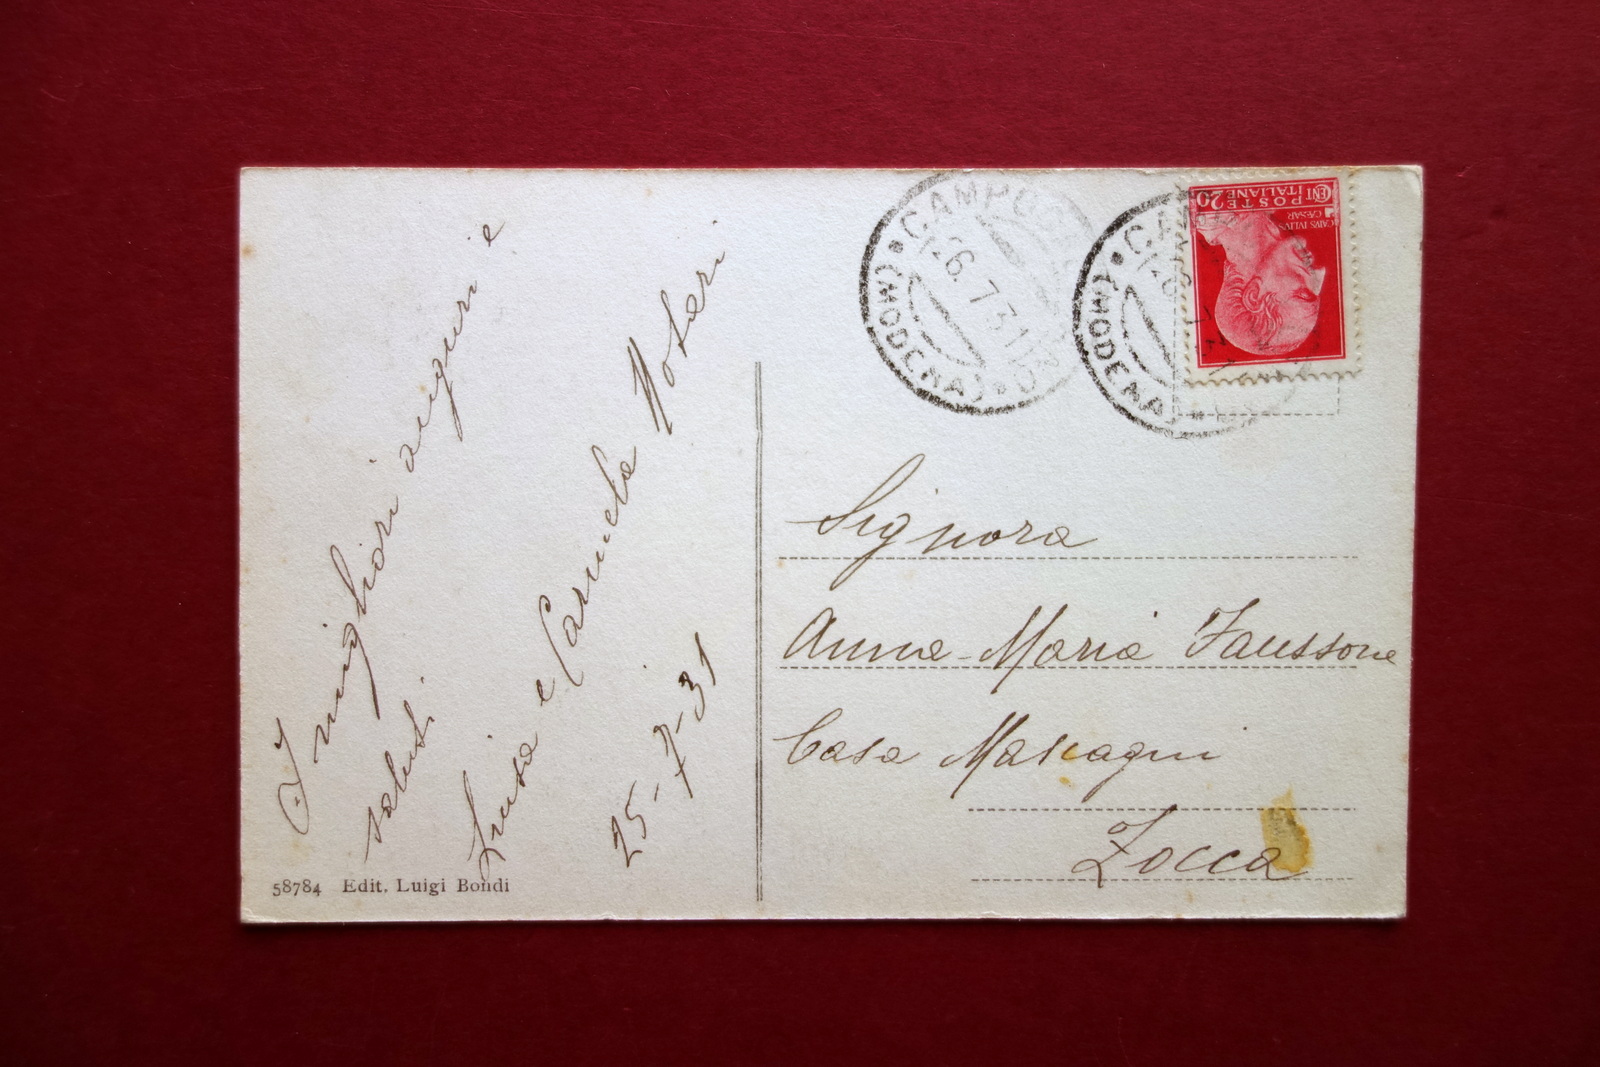 I migliori auguri e
saluti
Luisa e Carmela Notari
25-7-31
58784 Edit. Luigi Bondi
26.7.31
(MODENA)
(MODENA)
CENT 20
POSTE
ITALIANE
CAIVS IVLIVS
CÆSAR
Signora
Anna-Maria Faussone
Casa Mascagni
Zocca